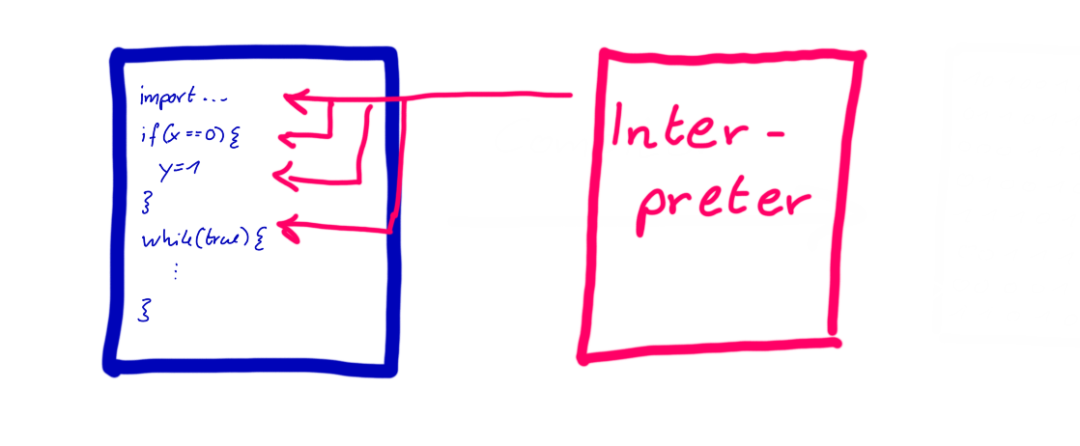 import ...
if(x==0){
y=1
}
while(true){
⋮
}
Inter-
preter